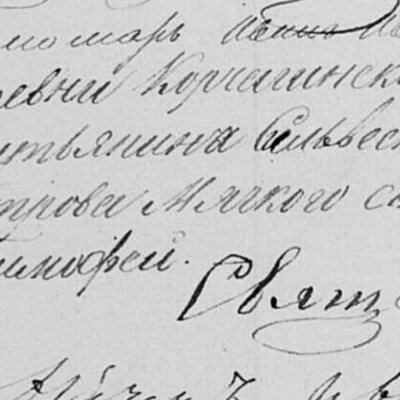 номарь Иванъ
ревни Корчагинск
стьянина Сильвес
трова Мягкого с
имофей.
Свят